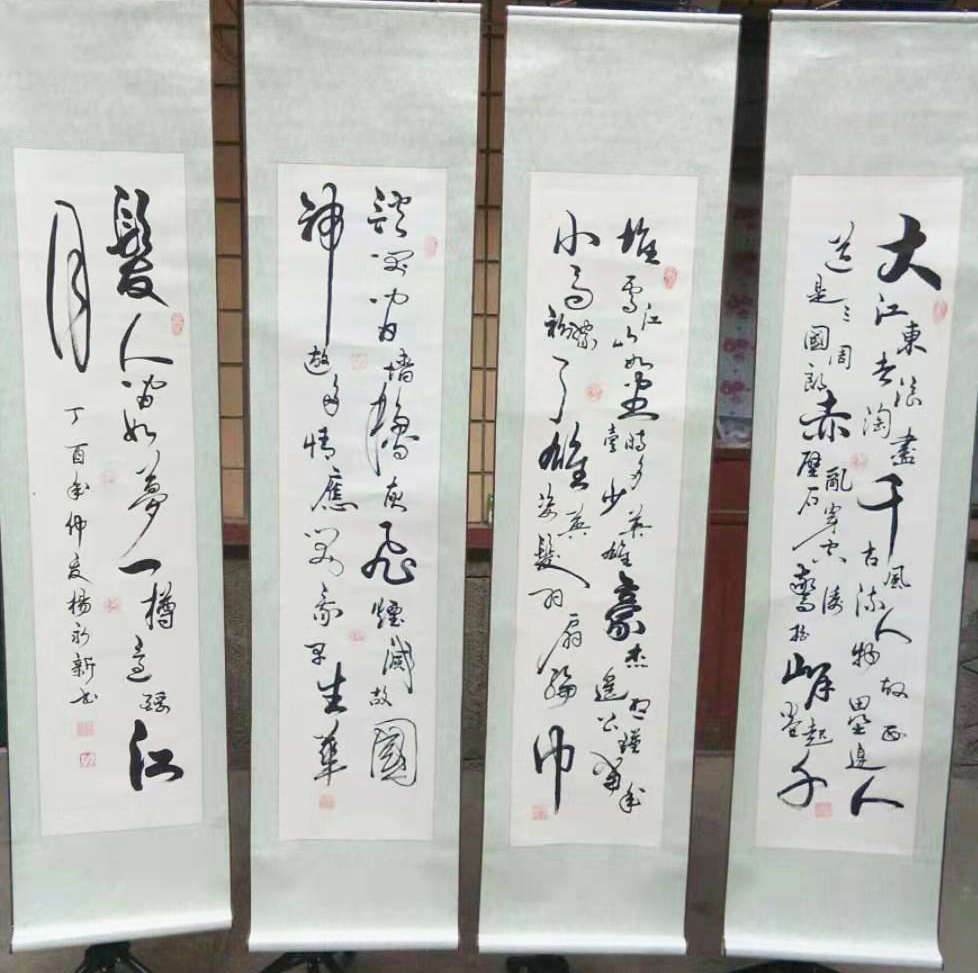 大江東去浪淘盡千古風流人物故壘西邊人
道是三國周郎赤壁亂石穿空驚濤拍岸卷起千
堆雪江山如畫一時多少英雄豪杰遙想公瑾當年
小喬初嫁了雄姿英發羽扇綸巾
談笑間檣櫓灰飛煙滅故國
神遊多情應笑我早生華
髮人間如夢一樽還酹江
月
丁酉年仲夏楊永新書